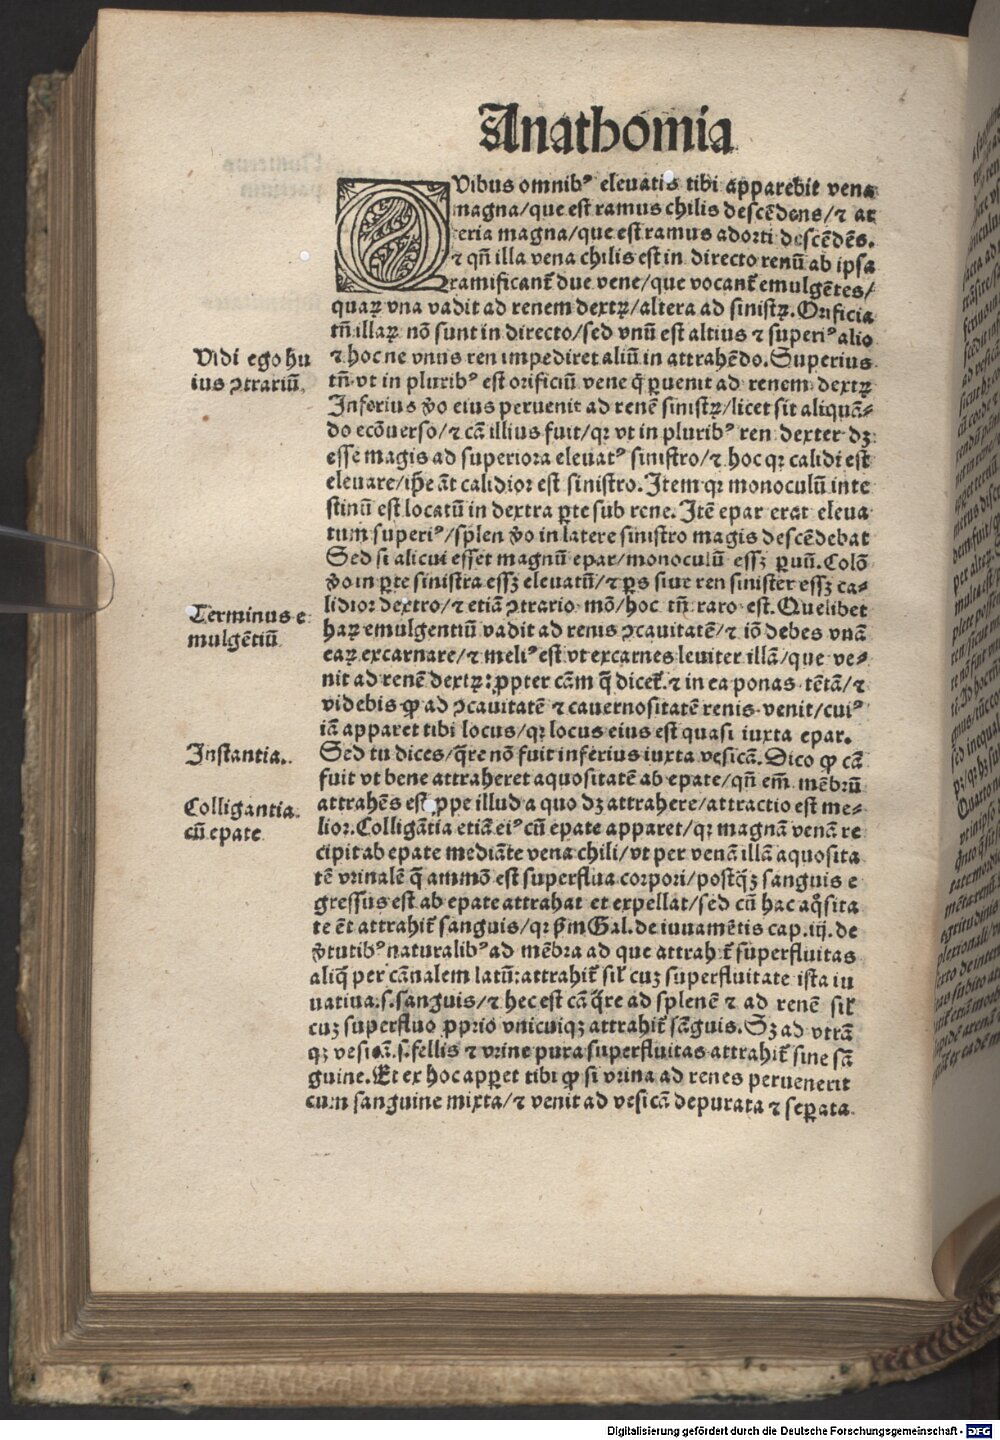 Anathomia
QVibus omnibꝰ eleuatis tibi apparebit vena
magna/que est ramus chilis descēdens/⁊ ar
teria magna/que est ramus adorti descēdēs.
⁊ qñ illa vena chilis est in directo renū ab ipsa
ramificant̄ due vene/que vocant̄ emulgētes/
quaꝝ vna vadit ad renem dextꝝ/altera ad sinistꝝ. Orificia
tñ illaꝝ nō sunt in directo/sed vnū est altius ⁊ superiꝰ alio
⁊ hoc ne vnus ren impediret aliū in attrahēdo. Superius
tñ vt in pluribꝰ est orificiū vene q̄ ꝑuenit ad renem dextꝝ
Inferius ꝟo eius peruenit ad renē sinistꝝ/licet sit aliquā⸗
do ecōuerso/⁊ cā illius fuit/qꝛ vt in pluribꝰ ren dexter dꝫ
esse magis ad superiora eleuatꝰ sinistro/⁊ hoc qꝛ calidi est
eleuare/iꝑe āt calidior est sinistro. Item qꝛ monoculū inte
stinū est locatū in dextra ꝑte sub rene. Itē epar erat eleua
tum superiꝰ/splen ꝟo in latere sinistro magis descēdebat
Sed si alicui esset magnū epar/monoculū essꝫ ꝑuū. Colō
ꝟo in ꝑte sinistra essꝫ eleuatū/⁊ ꝑs siue ren sinister essꝫ ca⸗
lidior dextro/⁊ etiā ꝯtrario mō/hoc tñ raro est. Quelibet
haꝝ emulgentiū vadit ad renis ꝯcauitatē/⁊ iō debes vnā
eaꝝ excarnare/⁊ meliꝰ est vt excarnes leuiter illā/que ve⸗
nit ad renē dextꝝ: ꝓpter cām q̄ dicet̄. ⁊ in ea ponas tētā/⁊
videbis ꝙ ad ꝯcauitatē ⁊ cauernositatē renis venit/cuiꝰ
iā apparet tibi locus/qꝛ locus eius est quasi iuxta epar.
Sed tu dices/q̄re nō fuit inferius iuxta vesicā. Dico ꝙ cā
fuit vt bene attraheret aquositatē ab epate/qñ em̄ mēbrū
attrahēs est ꝓpe illud a quo dꝫ attrahere/attractio est me⸗
lior. Colligātia etiā eiꝰ cū epate apparet/qꝛ magnā venā re
cipit ab epate mediāte vena chili/vt per venā illā aquosita
tē vrinalē q̄ ammō est superflua corpori/postqꝫ sanguis e
gressus est ab epate attrahat et expellat/sed cū hac aq̊sita
te ēt attrahit̄ sanguis/qꝛ ẜm Gal. de iuuamētis cap. iij. de
ꝟtutibꝰ naturalibꝰ ad mēbra ad que attrahūt̄ superfluitas
aliq̄ per cānalem latū: attrahit̄ sil̄ cuꝫ superfluitate ista iu
uatiua. s. sanguis/⁊ hec est cā q̄re ad splenē ⁊ ad renē sil̄
cuꝫ superfluo ꝓprio vnicuiqꝫ attrahit̄ sāguis. Sꝫ ad vtrā
qꝫ vesicā. s. fellis ⁊ vrine pura superfluitas attrahit̄ sine sā
guine. Et ex hoc apꝑet tibi ꝙ si vrina ad renes peruenerit
cum sanguine mixta/⁊ venit ad vesicā depurata ⁊ seꝑata
Vidi ego hu
ius ꝯtrariū.
Terminus e
mulgētiū
Instantia.
Colligantia
cū epate
Digitalisierung gefördert durch die Deutsche Forschungsgemeinschaft - DFG